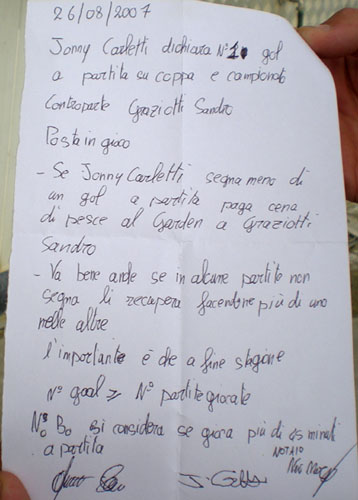 26/08/2007
Jonny Carletti dichiara N°1 gol
a partita su coppa e campionato
Controparte Graziotti Sandro
Posta in gioco
- Se Jonny Carletti segna meno di
un gol a partita paga cena
di pesce al Garden a Graziotti
Sandro
- Va bene anche se in alcune partite non
segna li recupera facendone più di uno
nelle altre
l'importante è che a fine stagione
N° goal ≥ N° partite giocate
N.B. si considera se gioca più di 45 minuti
a partita
NOTAIO